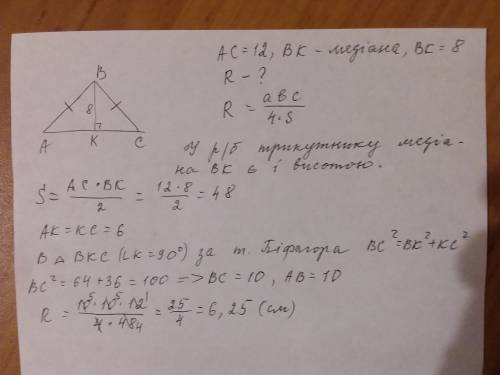 AC = 12, BK - медіана, BK = 8
R - ?
R = abc / 4·S
B
8
A K C
У р/б трикутнику медіа-
на BK є і висотою.
S = AC·BK / 2 = 12·8 / 2 = 48
AK = KC = 6
В △ BKC (∠K = 90°) за т. Піфагора BC² = BK² + KC²
BC² = 64 + 36 = 100 => BC = 10, AB = 10
R = 10⁵·10⁵·12¹ / 4·48₄ = 25 / 4 = 6,25 (см)